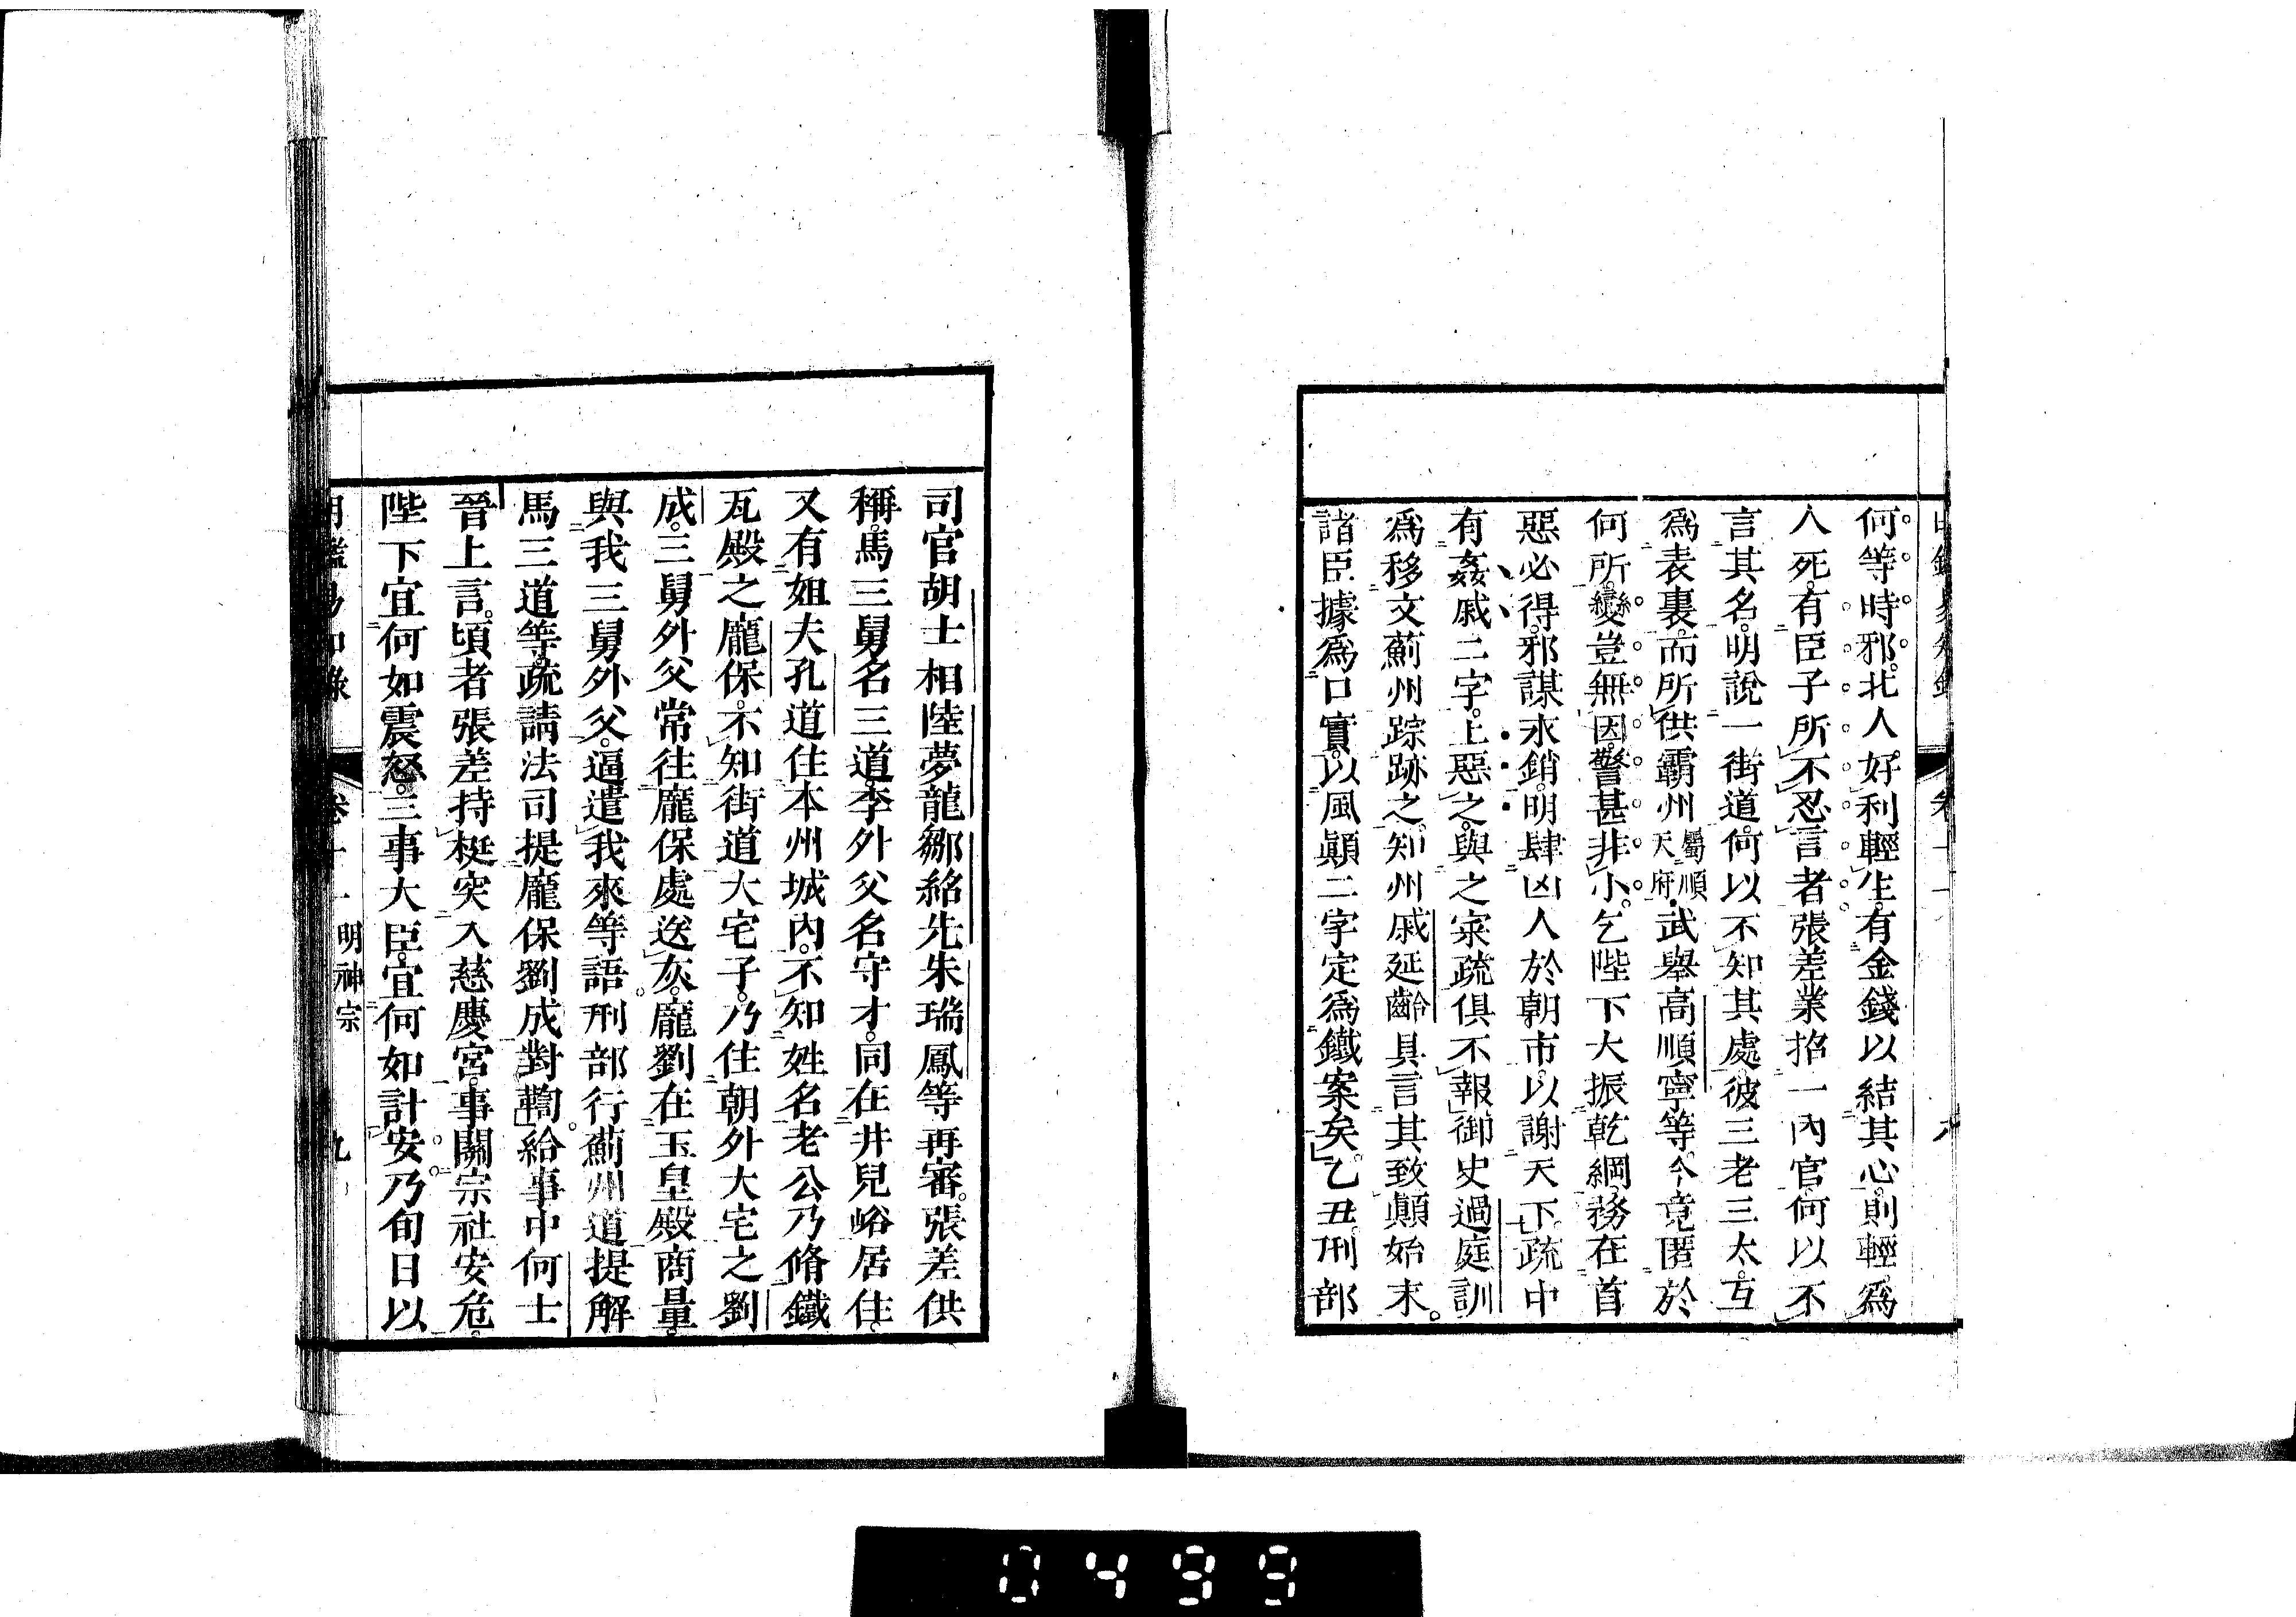 何等時邪。北人。好利輕生。有金錢以結其心。則輕爲
人死。有臣子所不忍言者。張差業招一內官。何以不
言其名。明說一街道。何以不知其處。彼三老三太。互
爲表裏。而所供霸州屬順天府武舉高順寧等。今竟匿於
何所。變豈無因。警甚非小。乞陛下大振乾綱。務在首
惡必得。邪謀永銷。明肆凶人於朝市。以謝天下。疏中
有姦戚二字。上惡之。與之寀疏俱不報。御史過庭訓
爲移文薊州踪跡之。知州戚延齡具言其致顛始末。
諸臣據爲口實。以風顛二字定爲鐵案矣。乙丑。刑部
司官胡士相陸夢龍鄒紹先朱瑞鳳等再審。張差供
稱。馬三舅名三道。李外父名守才。同在井兒峪居住。
又有姐夫孔道住本州城內。不知姓名老公。乃脩鐵
瓦殿之龐保。不知街道大宅子。乃住朝外大宅之劉
成。三舅外父常往龐保處送灰。龐劉在玉皇殿商量。
與我三舅外父。逼遣我來等語。刑部行薊州道。提解
馬三道等。疏請法司提龐保劉成對鞫。給事中何士
晉上言。頃者張差持梃突入慈慶宮。事關宗社安危。
陛下宜何如震怒。三事大臣。宜何如計安。乃旬日以
明鑑易知錄 卷十一 明神宗 九
0499